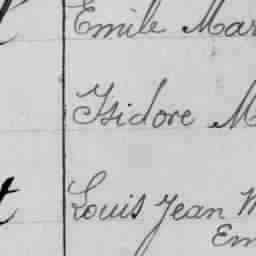 Emile Mar
Isidore M
Louis Jean M
Em